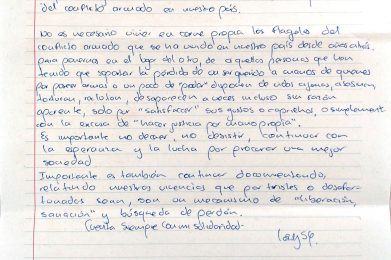 del conflicto armado en nuestro país.
No es necesario vivir en carne propia los flagelos del
conflicto armado que se ha vivido en nuestro país desde
para ponernos en el lugar del otro, de aquellas personas que han
tenido que soportar la pérdida de un ser querido a manos de quienes
por poseer armas o un poco de "poder" disponen de vidas ajenas, abusan,
torturan, violan, desaparecen a veces incluso sin razón
aparente, solo por "satisfacer" sus gustos o caprichos, o simplemente
con la excusa de "hacer justicia por mano propia".
Es importante no decaer no desistir, continuar con
la esperanza y la lucha por procurar una mejor
sociedad
Importante es también continuar documentando,
relatando nuestras vivencias que por tristes o desafor
tunadas sean, son un mecanismo de "liberación,
sanación" y búsqueda de perdón.
Cuenta siempre con mi solidaridad.